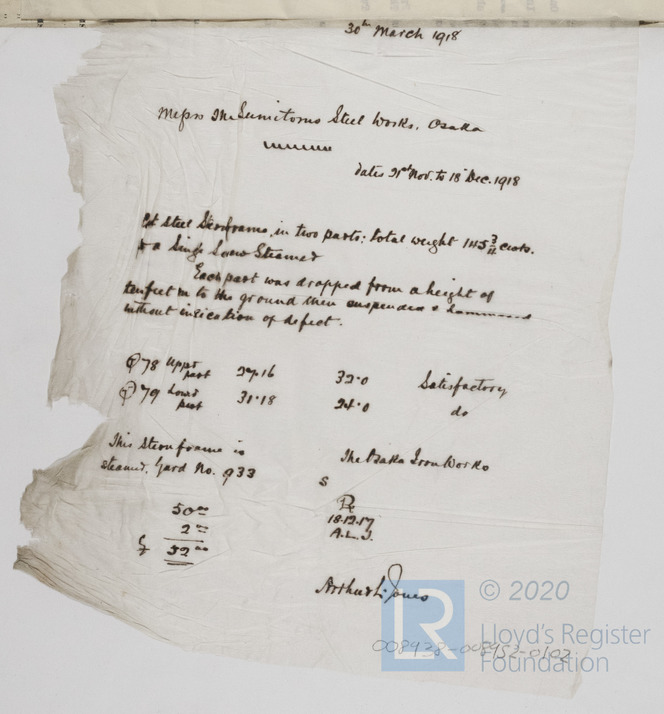 30th March 1918
Messrs The Sumitomo Steel Works, Osaka
dates 21st Nov. to 18 Dec. 1918
Steel Sternframe, in two parts: total weight cwts.
a Single Screw Steamer
Each part was dropped from a height of
ten feet on to the ground then suspended & hammered
without indication of defect.
78 Upper part 27.16 32.0 Satisfactory
79 Lower part 31.18 24.0 do
This Sternframe is
The Osaka Iron Works
steamer, Yard No. 933
S
50
2
52
18.12.17
A.L.J.
Arthur L. Jones
© 2020
LR
Lloyd's Register
Foundation
008938-008952-0102